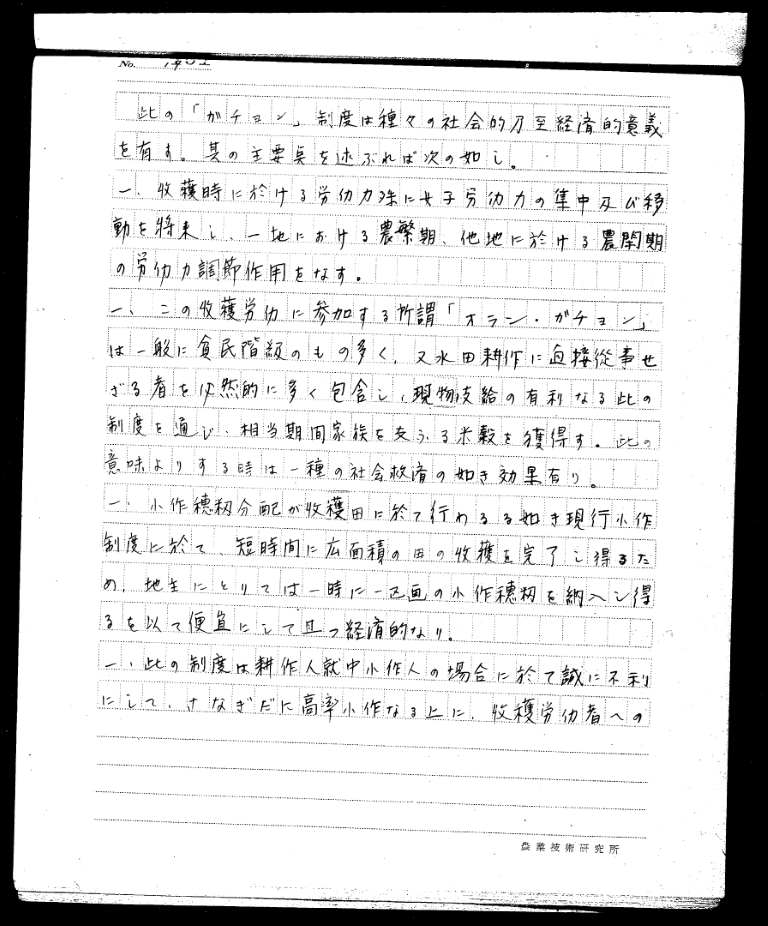 No.
此の「ガチョン」制度は種々の社会的乃至経済的意義
を有す。其の主要点を述ぶれば次の如し。
一、收穫時に於ける労仂力殊に女子労仂力の集中及び移
動を将来し、一地における農繁期、他地に於ける農閑期
の労仂力調節作用をなす。
一、この收穫労仂に参加する所謂「オラン・ガチョン」
は一般に貧民階級のもの多く、又水田耕作に直接從事せ
ざる者を必然的に多く包含し、現物支給の有利なる此の
制度を通じ、相当期間家族を支ふる米穀を獲得す。此の
意味よりする時は一種の社会救済の如き効果有り。
一、小作穂籾分配が收穫田に於て行わるる如き現行小作
制度に於て、短時間に広面積の田の收穫を完了し得るた
め、地主にとりては一時に一区画の小作穂籾を納入し得
るを以て便宜にして且つ経済的なり。
一、此の制度は耕作人就中小作人の場合に於て誠に不利
にして、さなぎだに高率小作なる上に、收穫労仂者への
農業技術研究所